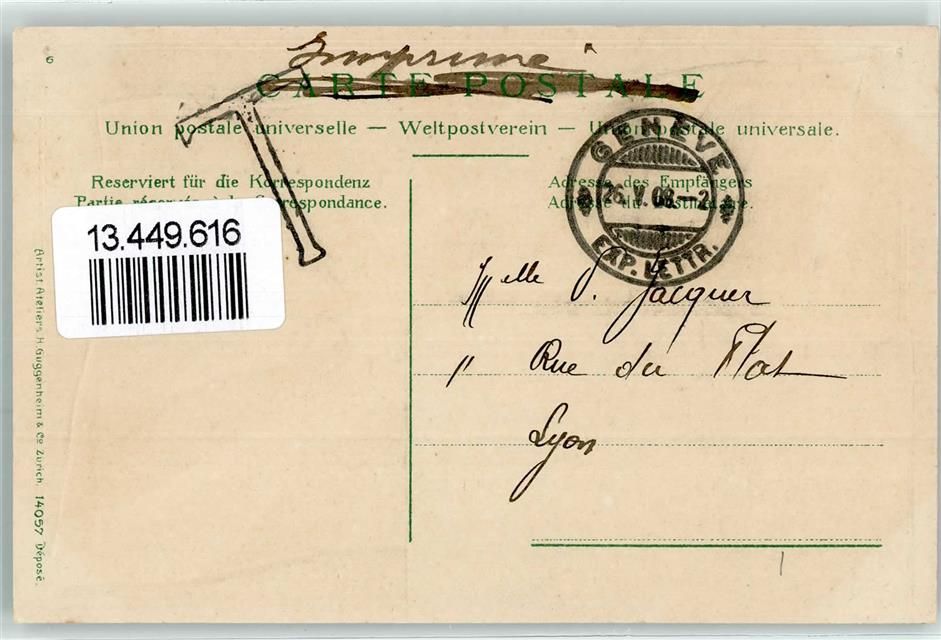 6
Imprimé
CARTE POSTALE
T
Union postale universelle — Weltpostverein — Union postale universale.
Reserviert für die Korrespondenz
Partie réservée à la Correspondance.
Adresse des Empfängers
Adresse du destinataire.
GENÈVE
26.V.08.—2
EXP. LETTR.
13.449.616
Melle V. Jacquer
11 Rue du Plat
Lyon
Artist. Ateliers H. Guggenheim & Co Zürich. 14057 Déposé.